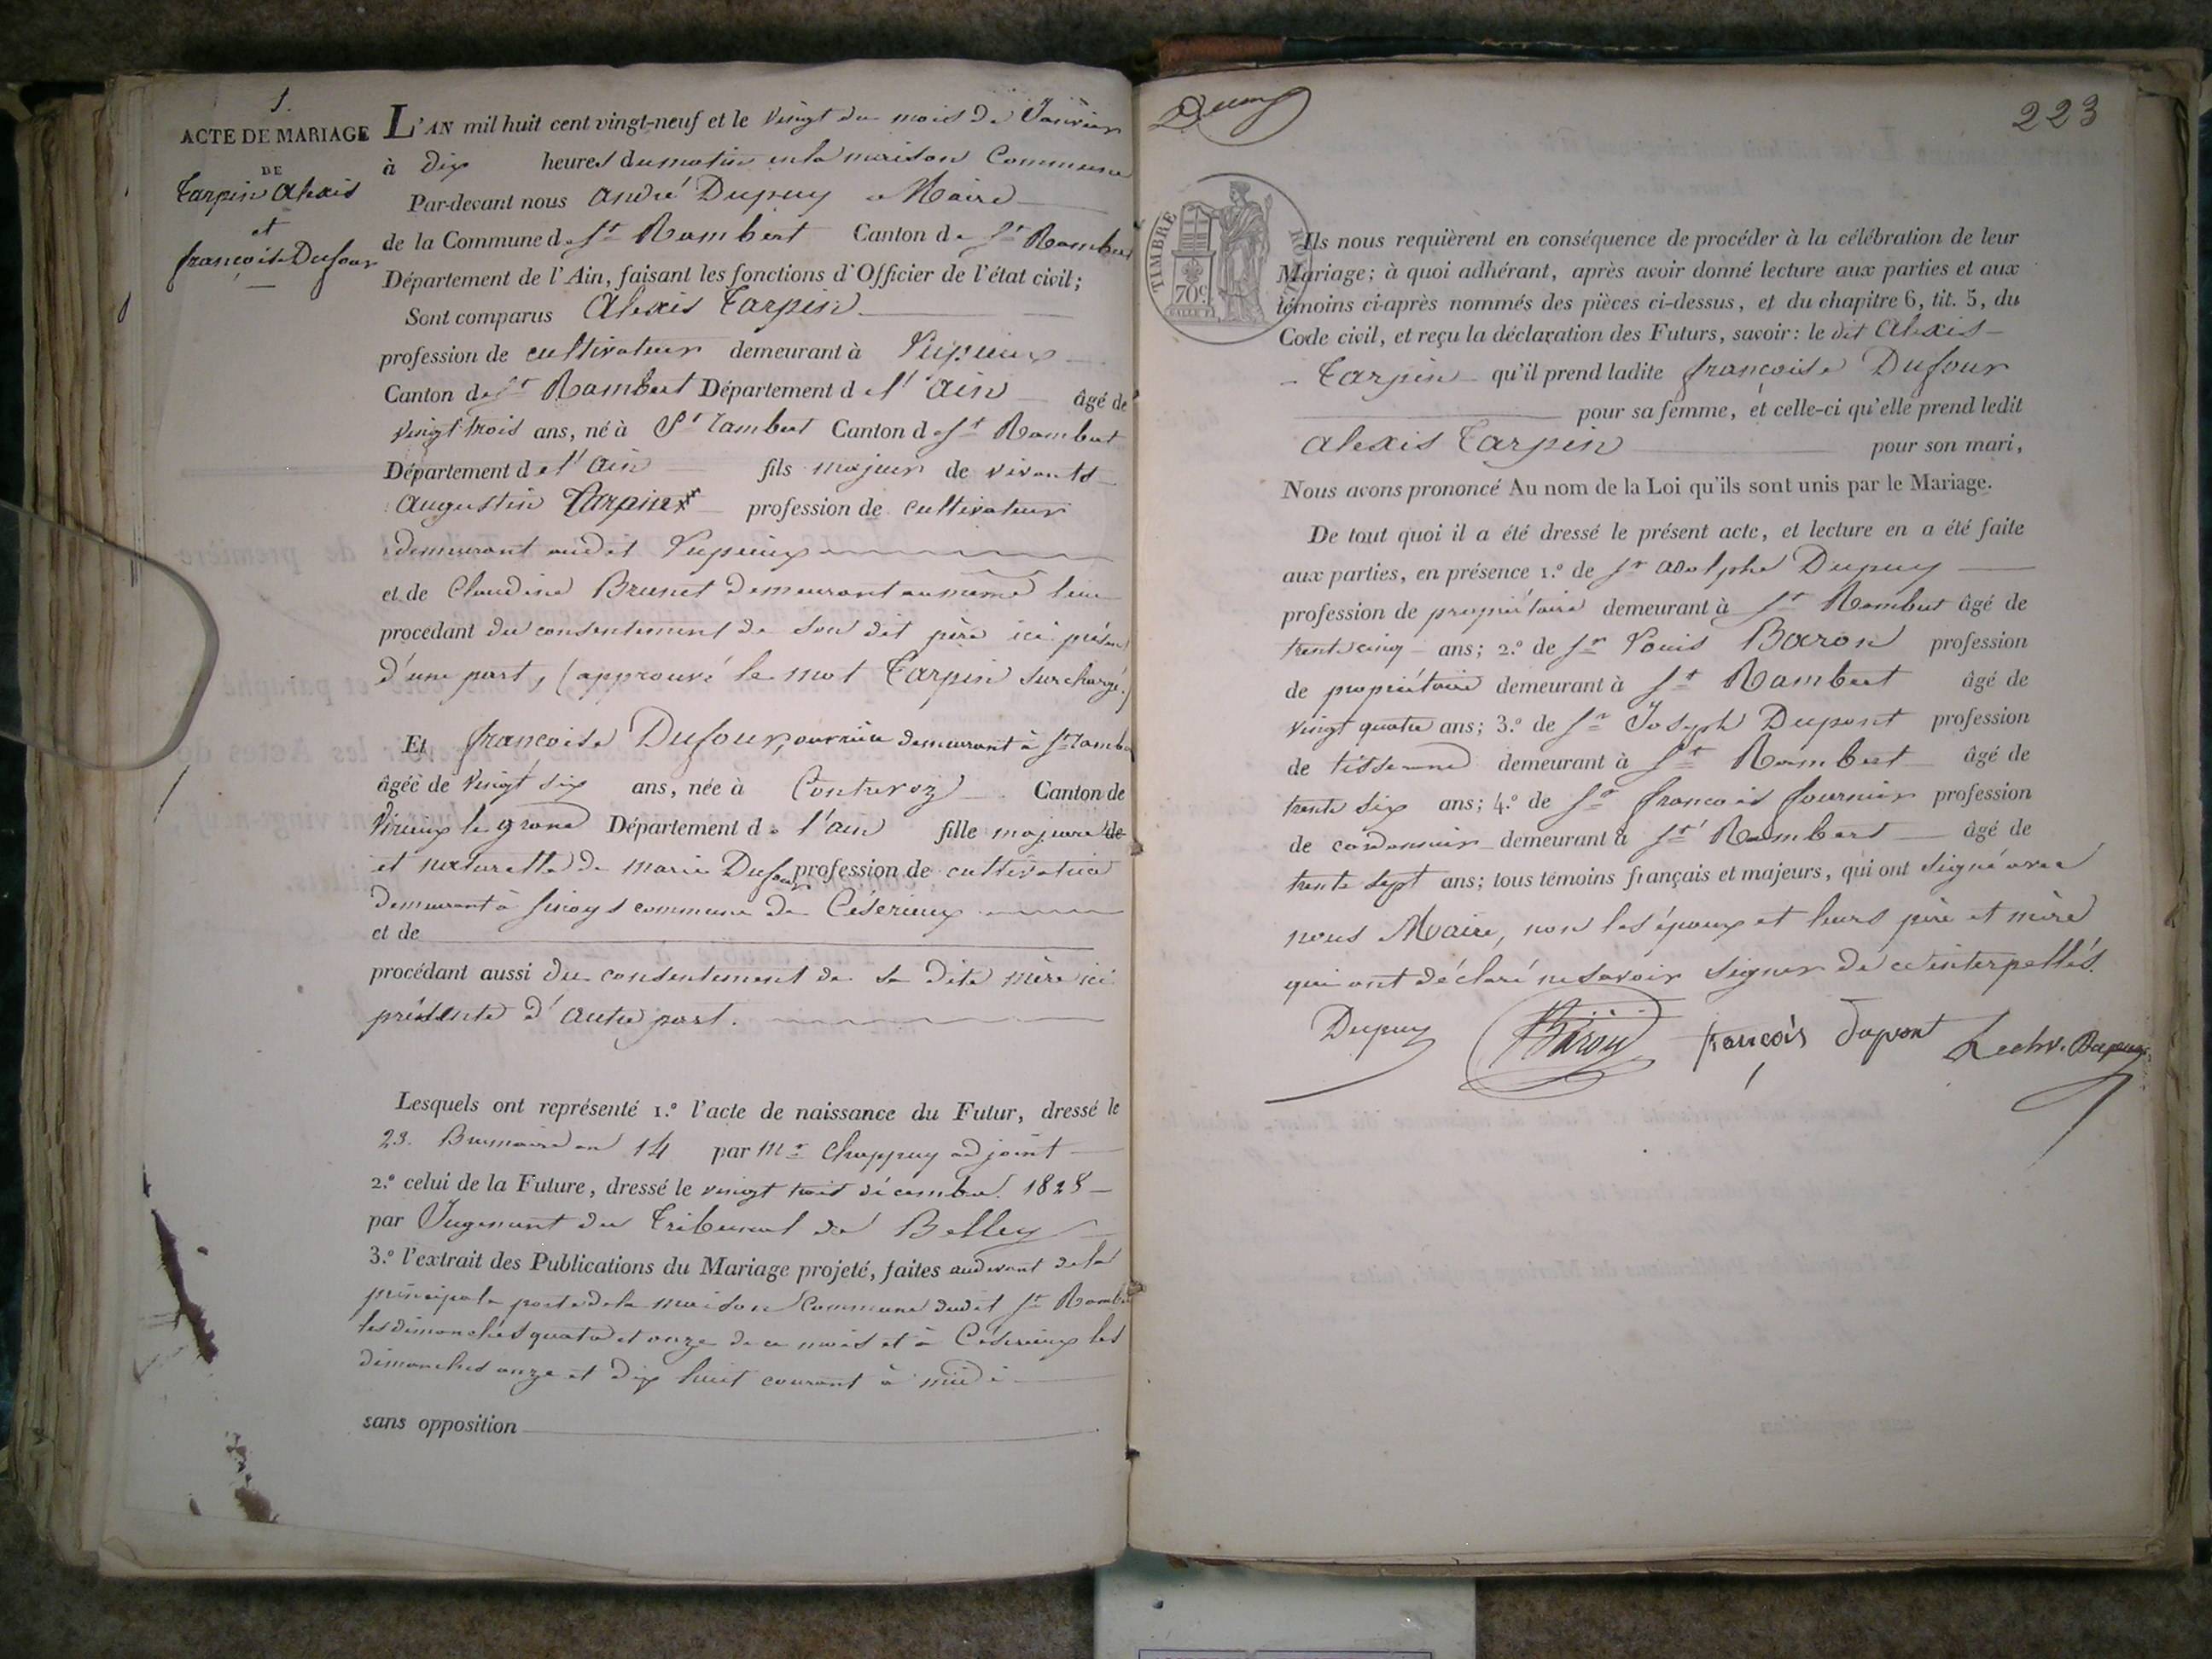 1.
ACTE DE MARIAGE
DE
Tarpin Alexis
et
françoise Dufour
L'AN mil huit cent vingt-neuf et le vingt du mois de Janvier
à dix heures du matin en la maison Commune
Par-devant nous andré Dupuy Maire
de la Commune de St Rambert Canton de St Rambert
Département de l'Ain, faisant les fonctions d'Officier de l'état civil;
Sont comparus Alexis Tarpin
profession de cultivateur demeurant à
Canton de St Rambert Département de l'ain âgé de
vingt trois ans, né à St rambert Canton de St Rambert
Département de l'ain fils majeur de vivants
augustin Tarpin profession de cultivateur
demeurant audit
et de Claudine Brunet demeurant au même lieu
procédant du consentement de son dit père ici présent
d'une part, (approuvé le mot Tarpin surchargé.)
Et françoise Dufour, ouvrière demeurant à St ramb
âgée de vingt six ans, née à Contrevoz Canton de
Virieux le grand Département de l'ain fille majeure de
et naturelle de marie Dufour profession de cultivatrice
demeurant à commune de Céserieux
et de
procédant aussi du consentement de sa dite mère ici
présente d'autre part.
Lesquels ont représenté 1.º l'acte de naissance du Futur, dressé le
23. Brumaire an 14 par Mr Chappuy adjoint
2.º celui de la Future, dressé le vingt trois décembre 1828
par Jugement du Tribunal de Belley
3.º l'extrait des Publications du Mariage projeté, faites audevant de la
principale porte de la maison Commune dudit St Ramb
les dimanches quatre et onze de ce mois et à Céserieux les
dimanches onze et dix huit courant à midi
sans opposition
Dupuy
223
TIMBRE ROYAL
70c.
Ils nous requièrent en conséquence de procéder à la célébration de leur
Mariage; à quoi adhérant, après avoir donné lecture aux parties et aux
témoins ci-après nommés des pièces ci-dessus, et du chapitre 6, tit. 5, du
Code civil, et reçu la déclaration des Futurs, savoir: le dit Alexis
Tarpin qu'il prend ladite françoise Dufour
pour sa femme, et celle-ci qu'elle prend ledit
alexis Tarpin pour son mari,
Nous avons prononcé Au nom de la Loi qu'ils sont unis par le Mariage.
De tout quoi il a été dressé le présent acte, et lecture en a été faite
aux parties, en présence 1.º de Sr adolphe Dupuy
profession de propriétaire demeurant à St Rambert âgé de
trente cinq ans; 2.º de Sr Louis Baron profession
de propriétaire demeurant à St Rambert âgé de
vingt quatre ans; 3.º de Sr Joseph Dupont profession
de tisserand demeurant à St Rambert âgé de
trente six ans; 4.º de Sr françois fournier profession
de cordonnier demeurant à St Rambert âgé de
trente sept ans; tous témoins français et majeurs, qui ont signé avec
nous Maire, non les époux et leurs père et mère
qui ont déclaré ne savoir signer de ce interpellés.
Dupuy Baron françois dupont